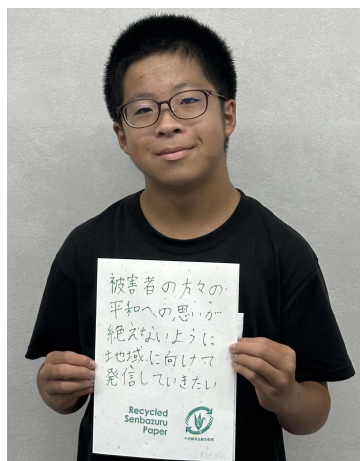 被害者の方々の
平和への思いが
絶えないように
地域に向けて
発信していきたい
Recycled
Senbazuru
Paper